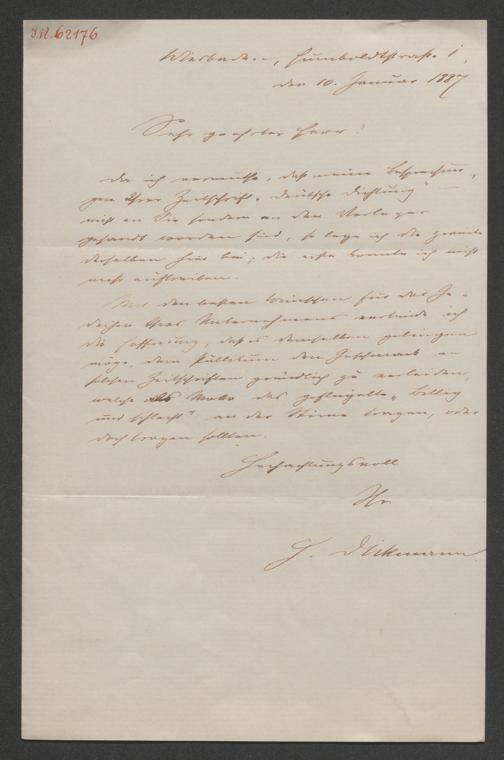 I.N. 62176
Wiesbaden, Humboldtstraße 1,
den 10. Januar 1887
Sehr geehrter Herr!
Da ich vermuthe, daß meine Besprechun-
gen Ihrer Zeitschrift „Deutsche Dichtung"
nicht an Sie sondern an den Verleger
gesandt worden sind, so lege ich die zweite
derselben hier bei; die erste konnte ich nicht
mehr auftreiben.
Mit den besten Wünschen für das Ge-
deihen Ihres Unternehmens verbinde ich
die Hoffnung, daß es demselben gelingen
möge, dem Publikum den Geschmack an
solchen Zeitschriften gründlich zu verleiden,
welche als Motto das geflügelte „Billig
und schlecht" an der Stirne tragen, oder
doch tragen sollten.
Hochachtungsvoll
Ihr